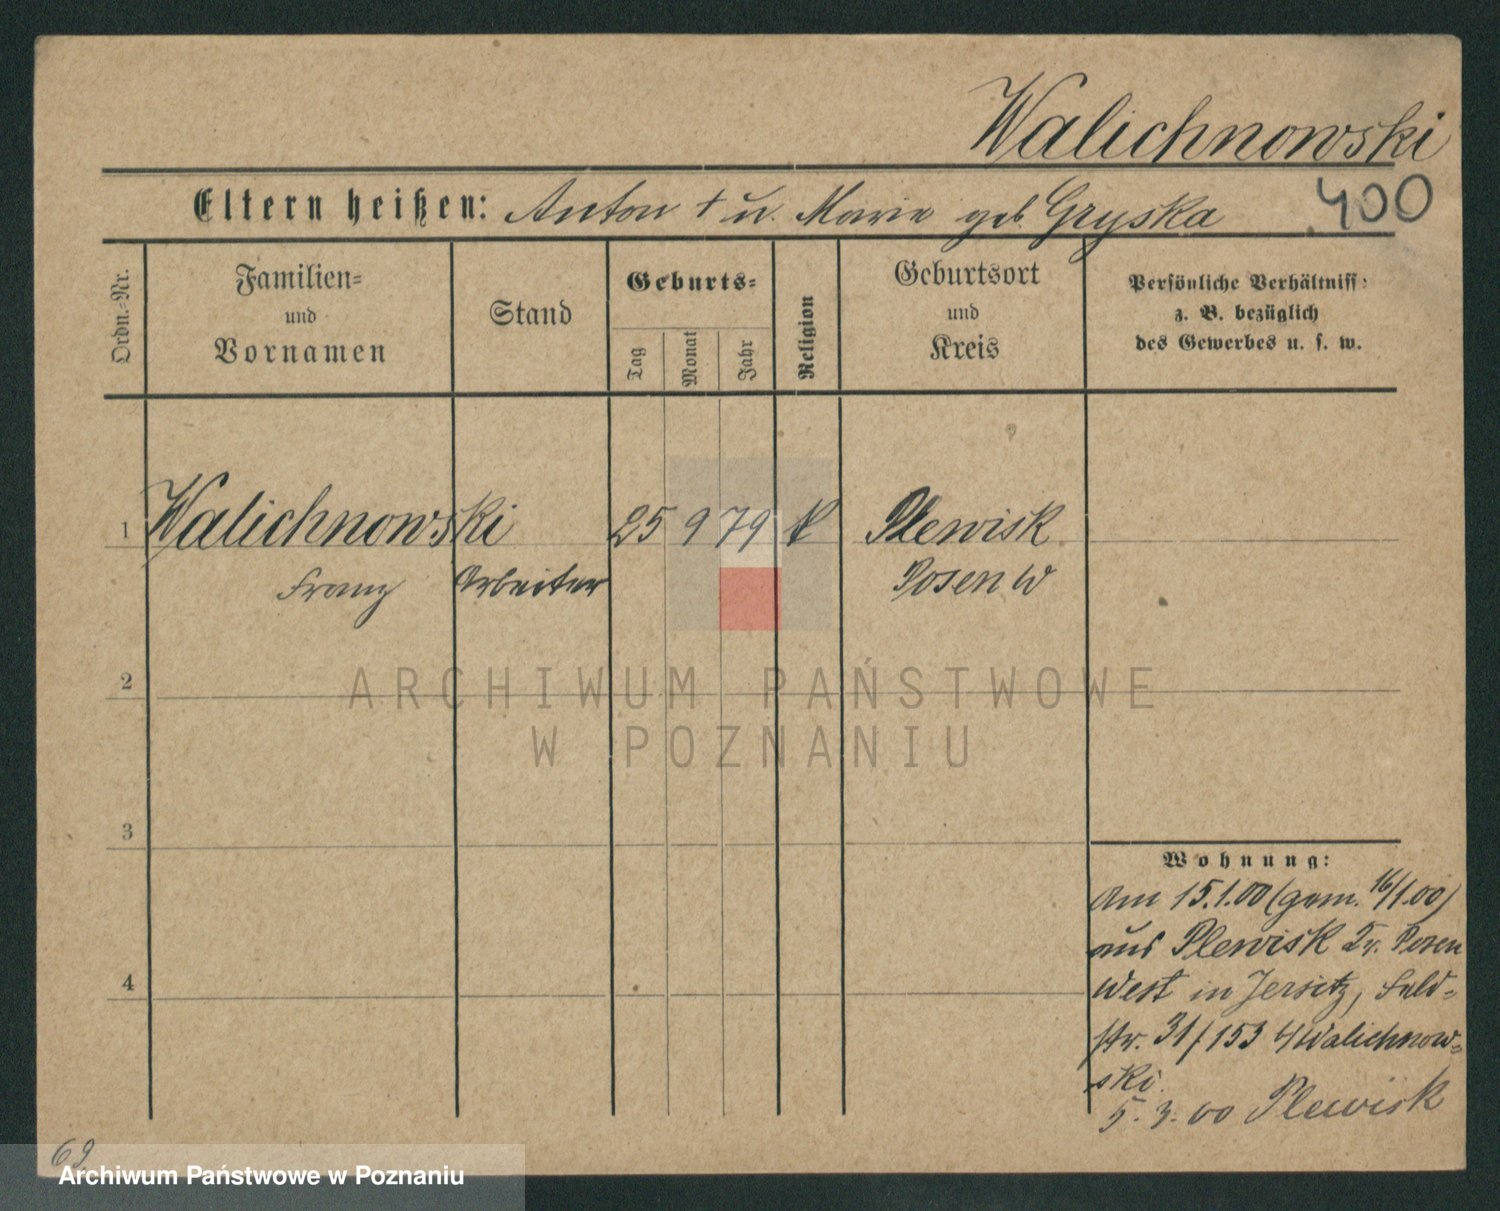 Walichnowski
Eltern heißen: Anton † u. Marie geb. Gryska
400
Ordn.-Nr.
Familien-
und
Vornamen
Stand
Geburts-
Tag
Monat
Jahr
Religion
Geburtsort
und
Kreis
Persönliche Verhältniss
z. B. bezüglich
des Gewerbes u. s. w.
1 Walichnowski 25 9 79 k Plewisk
Franz Arbeiter Posen W
2
ARCHIWUM PAŃSTWOWE
W POZNANIU
3
Wohnung:
Am 15.1.00 (gem. 16/1.00)
aus Plewisk Kr. Posen
West in Jersitz, Feld-
4
str. 31/153 Walichnow-
ski.
5. 3. 00 Plewisk
69
Archiwum Państwowe w Poznaniu